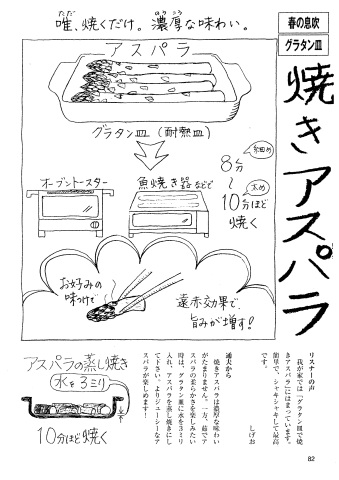 春の息吹
グラタン皿
焼きアスパラ
唯、焼くだけ。濃厚な味わい。
ただ
のうこう
アスパラ
グラタン皿(耐熱皿)
オーブントースター
魚焼き器などで
細め
8分
〜
太め
10分ほど
焼く
お好みの
味つけで
遠赤効果で
旨みが増す!
アスパラの蒸し焼き
水を3ミリ
10分ほど焼く
リスナーの声
我が家では「グラタン皿で焼
きアスパラ」にはまっています。
簡単で、シャキシャキして最高
です。
しげお
達夫から
焼きアスパラは濃厚な味わい
がたまりません。一方、茹でア
スパラの柔らかさを楽しみたい
時は、グラタン皿に水を3ミリ
入れ、アスパラを蒸し焼きにし
て下さい。よりジューシーなア
スパラが楽しめます!
82